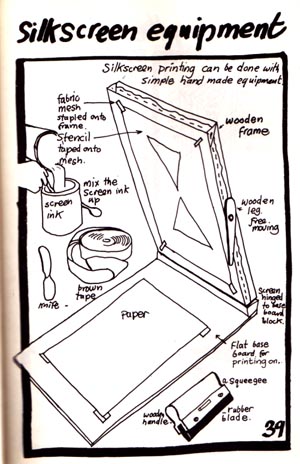 Silkscreen equipment
Silkscreen printing can be done with
simple hand made equipment
fabric
mesh
stapled onto
frame.
Stencil
taped onto
mesh.
wooden
frame
mix the
screen ink
up
screen
ink
wooden
leg.
free
moving
brown
tape
knife -
Screen
hinged
to base
board
block.
Paper
Flat base
board for
printing on.
a squeegee
wooden
handle
rubber
blade.
39